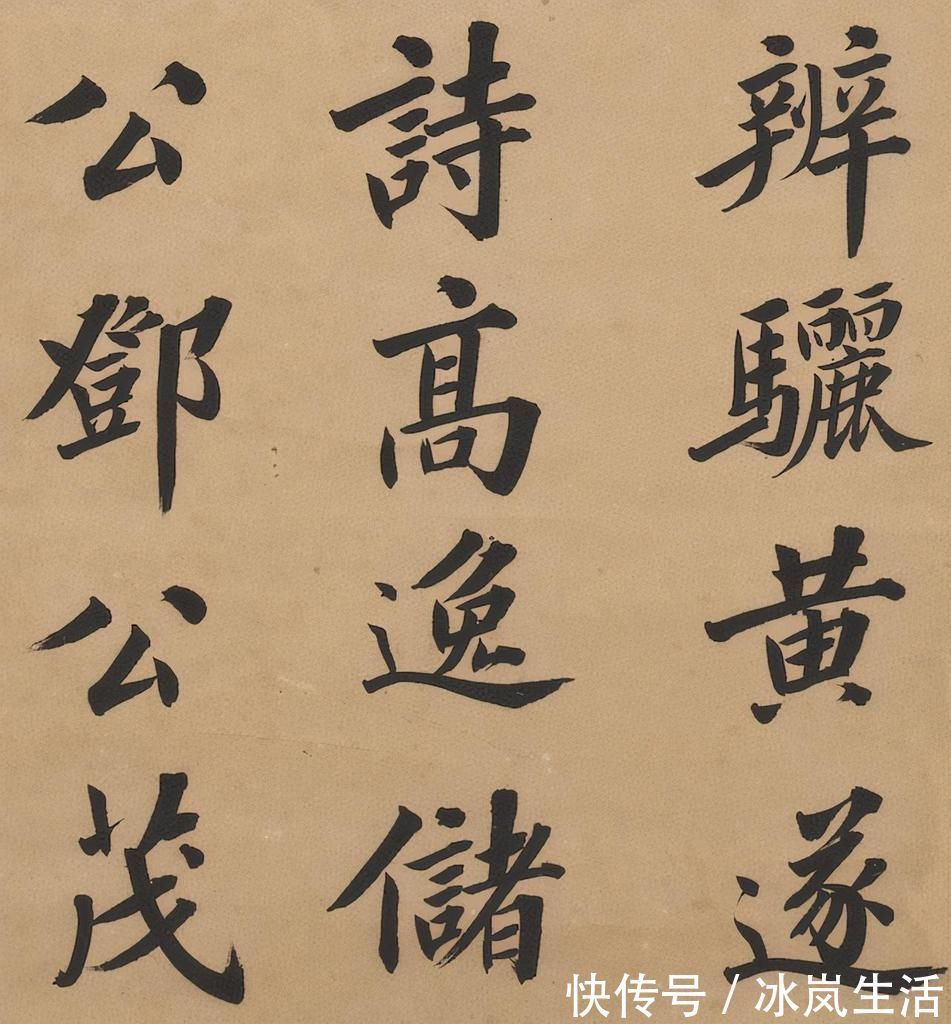 辨驪黃遂
詩高逸儲
公鄧公茂
快传号 / 冰岚生活